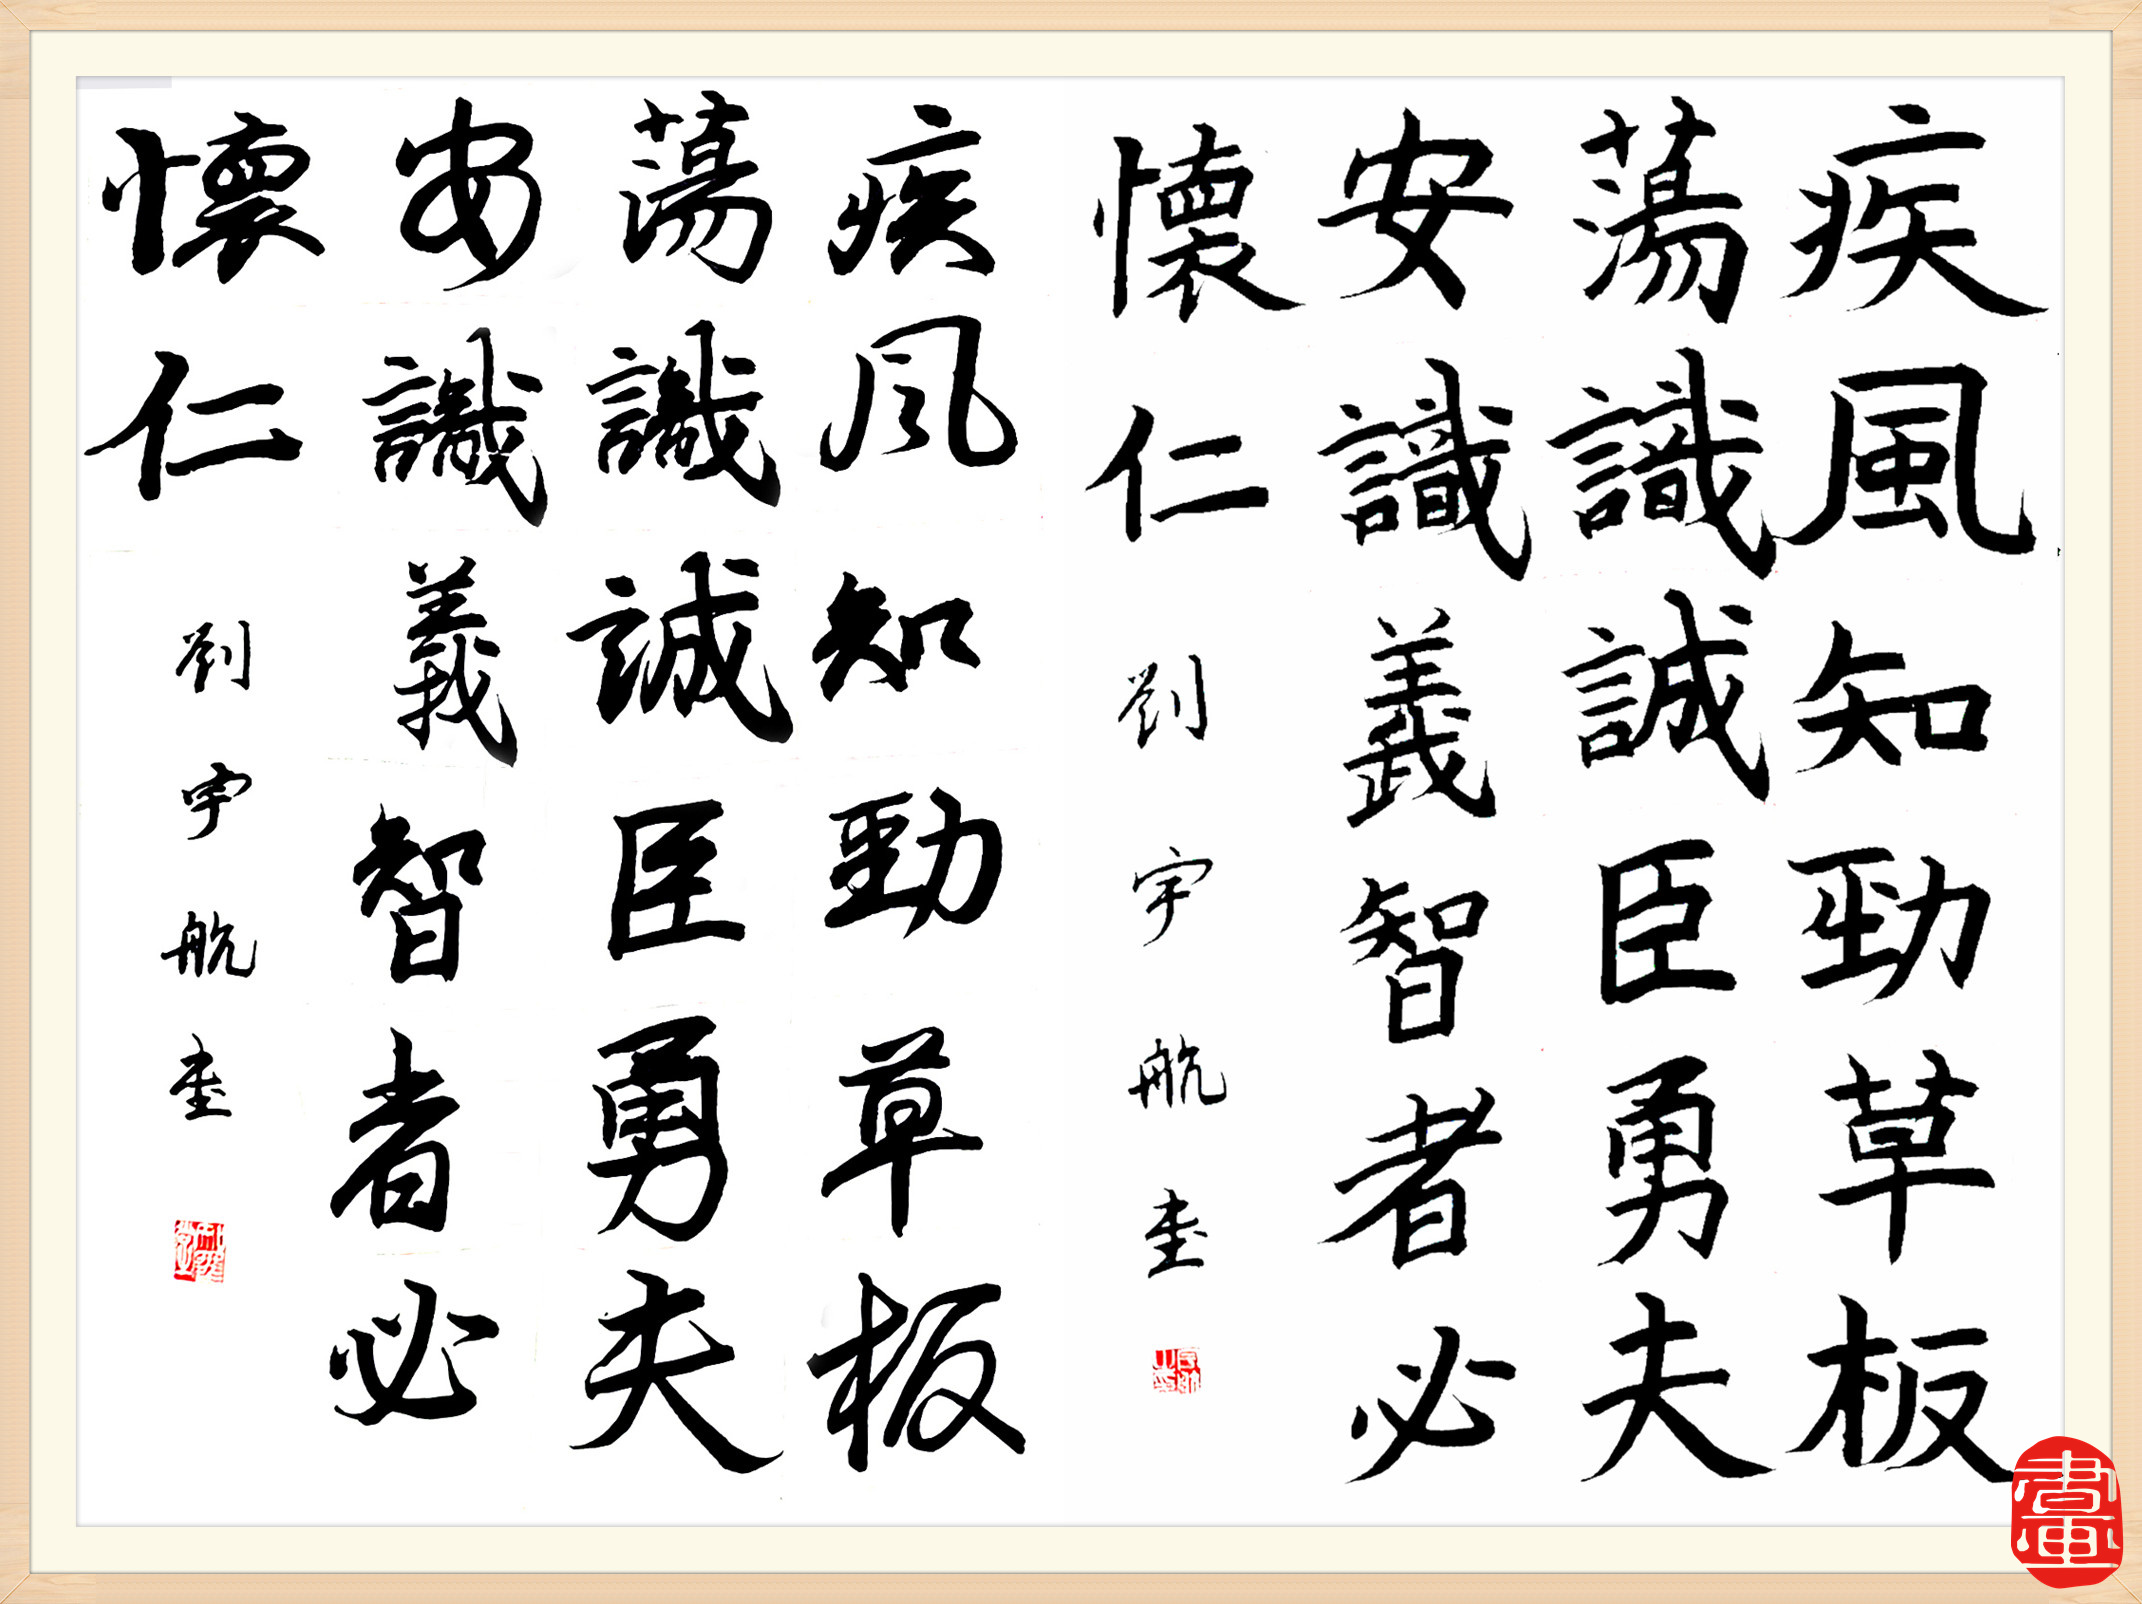 疾風知勁草板
蕩識誠臣勇夫
安識義智者必
懷仁
劉宇航書
疾風知勁草板
蕩識誠臣勇夫
安識義智者必
懷仁
劉宇航書